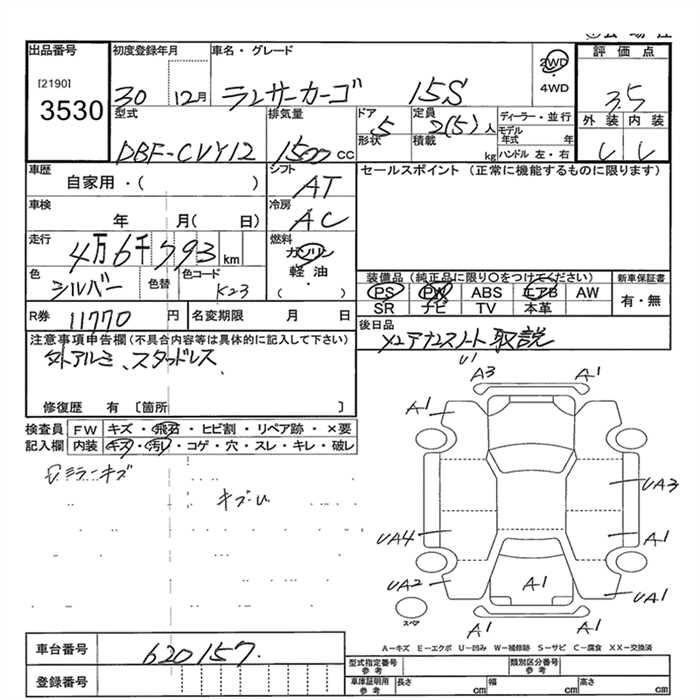 出品番号
初度登録年月
車名・グレード
評価点
[2190]
3530
30
12月
ランサーカーゴ
15S
2WD
・
4WD
3.5
外装
内装
型式
DBF-CVY12
排気量
1500 CC
ドア
5
定員
2(5)人
形状
積載
kg
ディーラー・並行
モデル年式
年
ハンドル 左・右
車歴
自家用・(
)
シフト
AT
セールスポイント (正常に機能するものに限ります)
車検
年 月( 日)
冷房
AC
走行
4万6千793 km
燃料
ガソリン
軽油
・
( )
色
シルバー
色替
色コード
K23
装備品(純正品に限り○をつけてください)
新車保証書
PS PW ABS エアB AW
SR ナビ TV 本革
有・無
R券
11770 円
名変期限
月 日
後日品
取説
注意事項申告欄(不具合内容等は具体的に記入して下さい)
社外アルミ、スタッドレス
修復歴 有 〔箇所 〕
検査員
記入欄
FW
キズ・飛石・ヒビ割・リペア跡・×要
内装
キズ・汚レ・コゲ・穴・スレ・キレ・破レ
ミラーキズ
キズU
U1
A3
A1
A1
A1
UA3
UA4
A1
UA2
A1
UA1
スペア
A1
A1
A-キズ E-エクボ U-凹み W-補修跡 S-サビ C-腐食 XX-交換済
車台番号
620157
登録番号
型式指定番号
参考
類別区分番号
参考
車庫証明用
参考
長さ
cm
幅
cm
高さ
cm